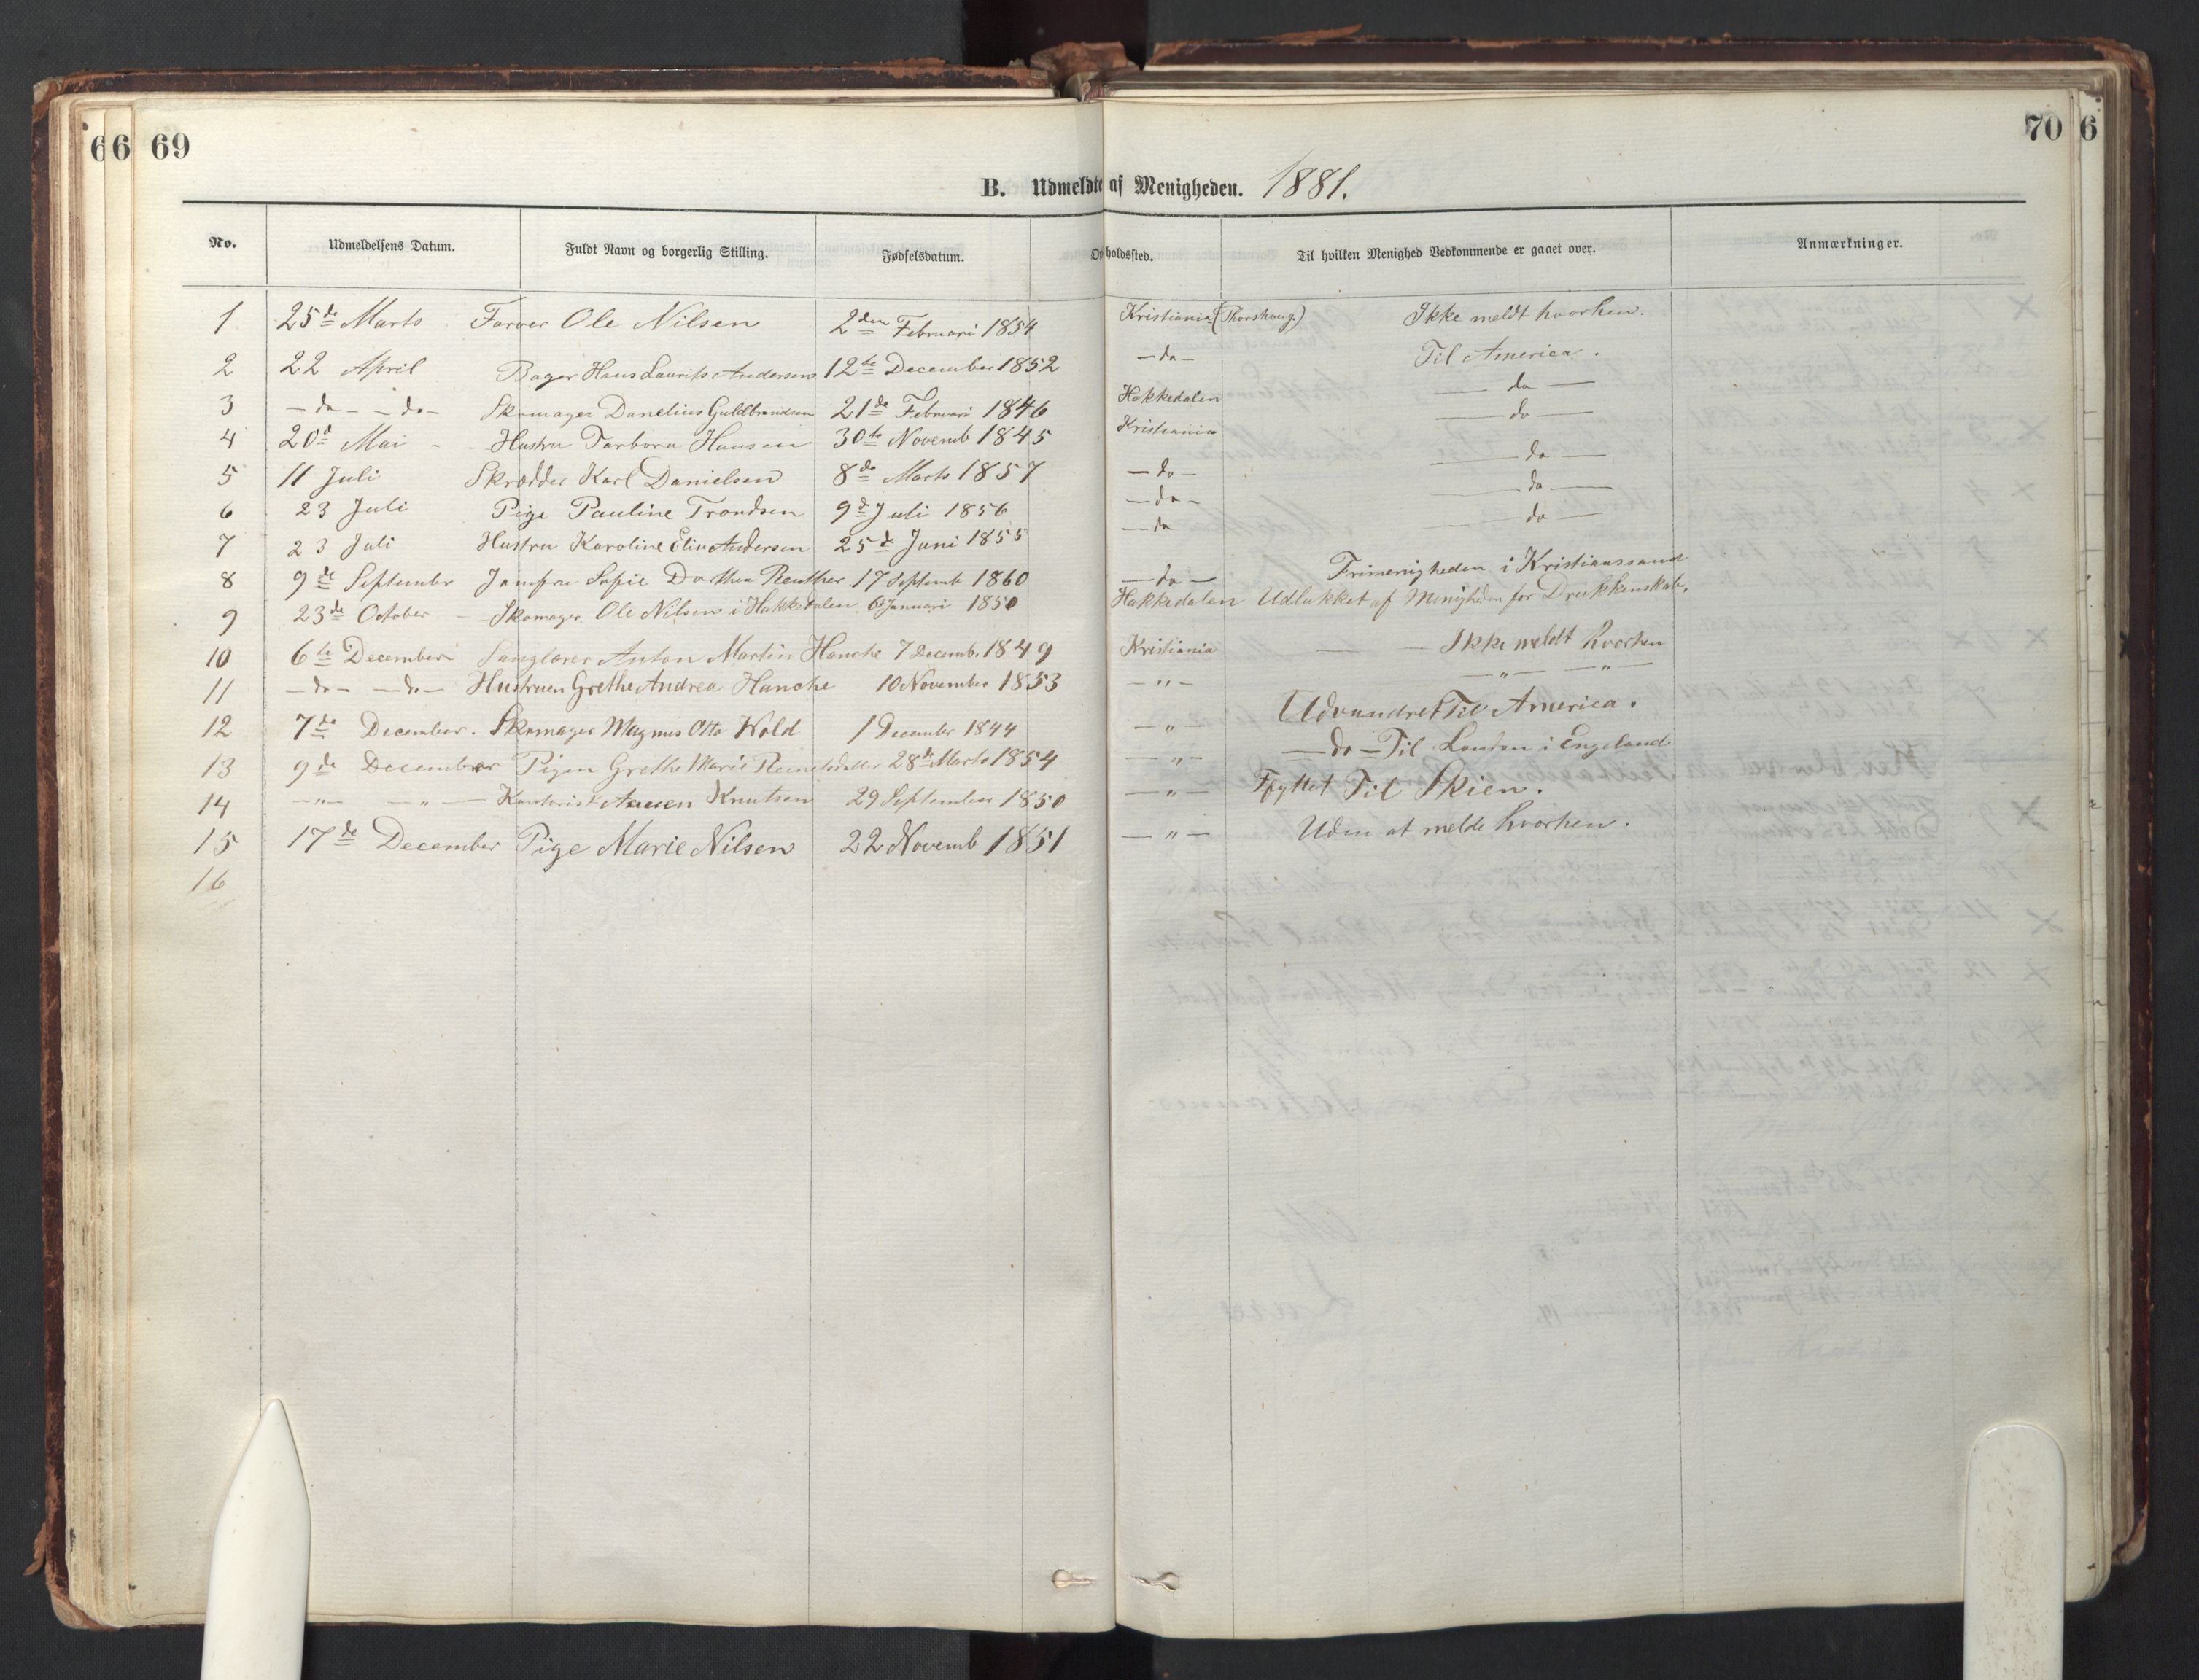 69
70
B. Udmeldte af Menigheden. 1881.
No. Udmeldelsens Datum. Fuldt Navn og borgerlig Stilling. Fødselsdatum. Opholdssted. Til hvilken Menighed Vedkommende er gaaet over. Anmærkninger.
1 25de Marts Farver Ole Nilsen 2den Februari 1854 Kristiania (Thorshaug.) Ikke meldt hvorhen.
2 22 April Bager Hans Laurits Andersen 12te December 1852 - do - Til America.
3 - do - - do - Skomager Danelius Guldbrandsen 21de Februari 1846 Hakkedalen do
4 20d Mai - Hustru Torbora Hansen 30te Novemb 1845 Kristiania do
5 11 Juli Skrædder Karl Danielsen 8de Marts 1857 - do - do
6 23 Juli Pige Pauline Trondsen 9d Juli 1856 - do - do
7 23 Juli Hustru Karoline Elin Andersen 25de Juni 1855 - do do
8 9de September Jomfru Sofie Dorthea Reuther 17 Septemb 1860 - do - Frimenigheden i Kristianssand
9 23de October - Skomager Ole Nilsen i Hakkedalen 6 Januari 1850 Hakkedalen Udlukket af Menigheden for Drukkenskab.
10 6te December Sanglærer Anton Martin Hanche 7 Decemb. 1849 Kristiania Ikke meldt hvorhen
11 - do - - do - Hustruen Grethe Andrea Hanche 10 November 1853 - " - - " -
12 7de December. Skomager Magnus Otto Wold 1 December 1844 - " - Udvandret Til America.
13 9de December Pigen Grethe Marie 28de Marts 1854 - " - - do - Til London i Engeland
14 - " - - " - Kontorist Knutsen 29 September 1850 - " - Flyttet Til Skien.
15 17de December Pige Marie Nilsen 22 Novemb 1851 - " - Uden at melde hvorhen.
16